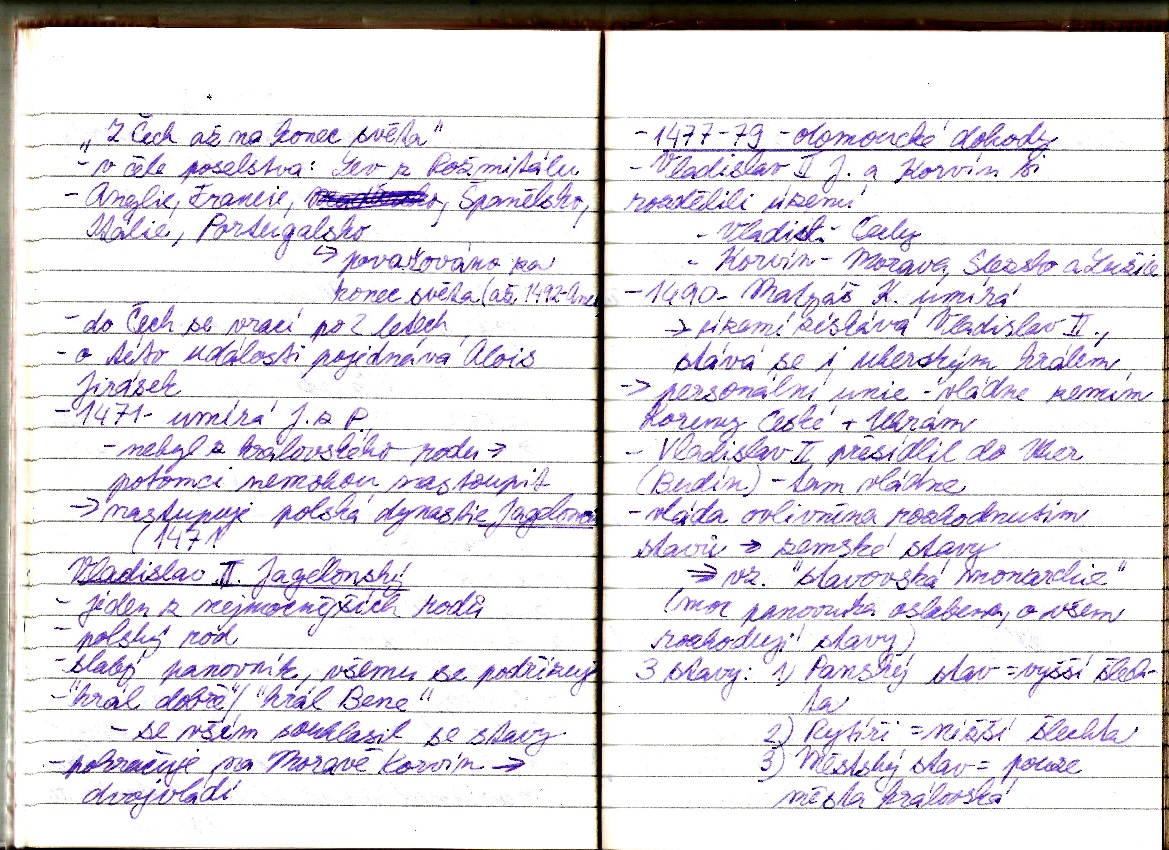 „Z Čech až na konec světa"
- v čele poselstva: Lev z Rožmitálu
- Anglie, Francie, Španělsko,
Itálie, Portugalsko
↳ považováno za
konec světa (až 1492-
- do Čech se vrací po 2 letech
- o této události pojednává Alois
Jirásek
- 1471 - umírá J. z P.
- nebyl z královského rodu →
potomci nemohou nastoupit
→ nastupuje polská dynastie Jagelonci
(1471)
Vladislav II. Jagelonský
- jeden z nejmocnějších rodů
- polský rod
- slabý panovník, všemu se podřizuje
- "král dobře"/ "král Bene"
- se vším souhlasil se stavy
- pokračuje na Moravě Korvín →
dvojvládí
- 1477-79 - olomoucké dohody
- Vladislav II J. a Korvín si
rozdělili území
- Vladisl. - Čechy
- Korvín - Morava, Slezsko a Lužice
- 1490 - Matyáš K. umírá
→ území získává Vladislav II.,
stává se i uherským králem
→ personální unie - vládne zemím
Koruny České + Uhrám
- Vladislav II přesídlil do Uher
(Budín) - tam vládne
- vláda ovlivněna rozhodnutím
stavů → zemské stavy
→ vz. "stavovská monarchie"
(moc panovníka oslabena, o všem
rozhodují stavy)
3 stavy: 1) Panský stav = vyšší šlech-
ta
2) Rytíři = nižší šlechta
3) Městský stav = pouze
města královská